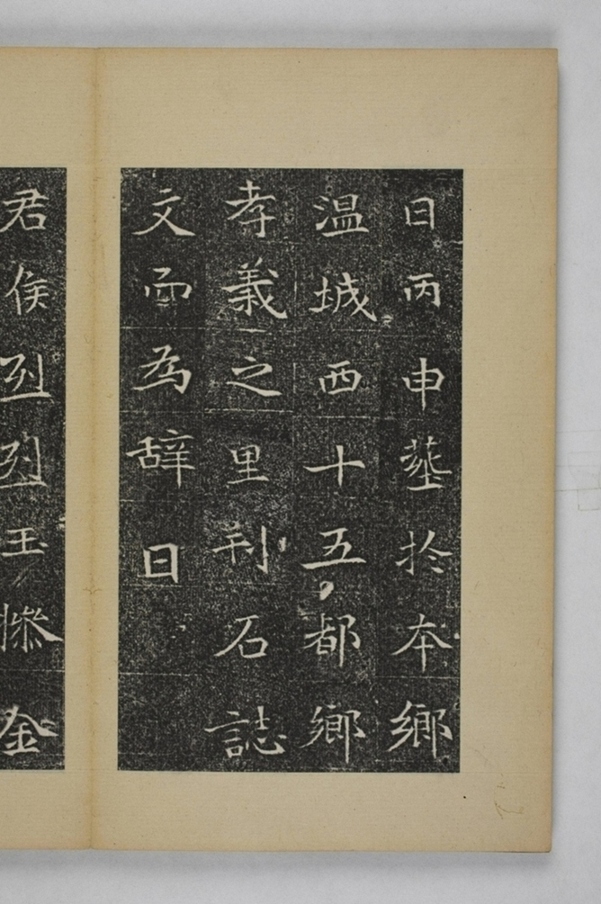 日丙申塟扵本鄉
温城西十五都鄉
孝義之里刋石誌
文而為辞曰
君侯烈烈玉㯟金